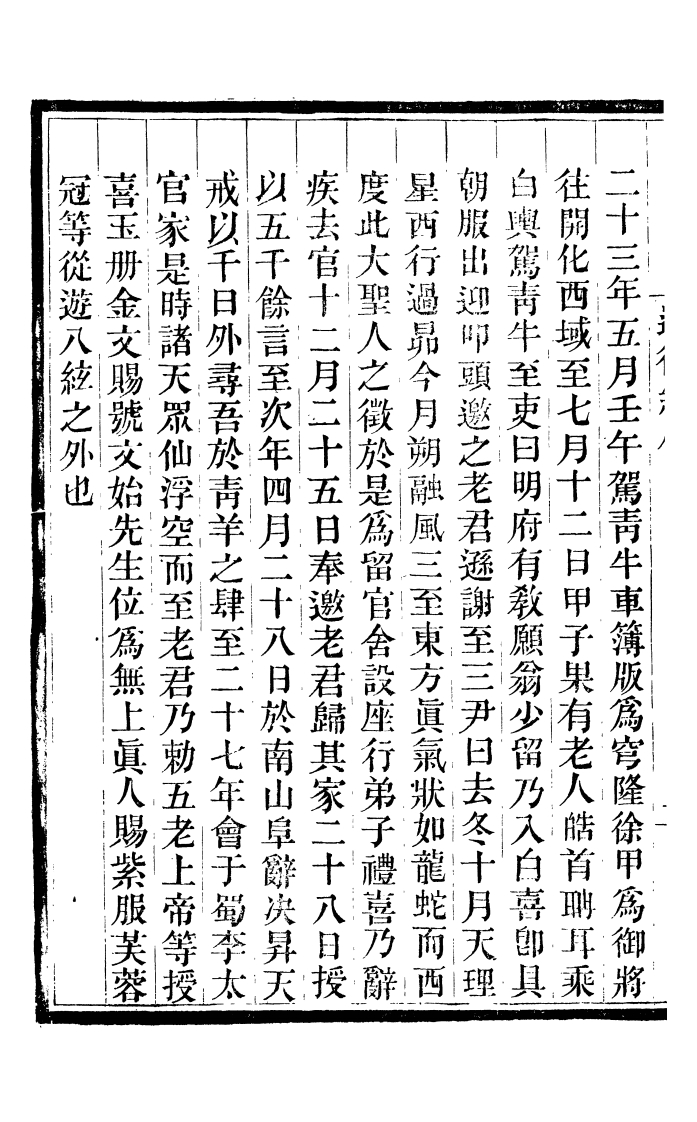 二十三年五月壬午駕靑牛車簿版爲穹隆徐甲爲御將
往開化西域至七月十二日甲子果有老人皓首聃耳乘
白輿駕靑牛至吏曰明府有敎願翁少留乃入白喜卽具
朝服出迎叩頭邀之老君遜謝至三尹曰去冬十月天理
星西行過昴今月朔融風三至東方眞氣狀如龍蛇而西
度此大聖人之徵於是爲留官舍設座行弟子禮喜乃辭
疾去官十二月二十五日奉邀老君歸其家二十八日授
以五千餘言至次年四月二十八日於南山阜辭决昇天
戒以千日外尋吾於靑羊之肆至二十七年會于蜀李太
官家是時諸天眾仙浮空而至老君乃勅五老上帝等授
喜玉册金文賜號文始先生位爲無上眞人賜紫服芙蓉
冠等從遊八紘之外也